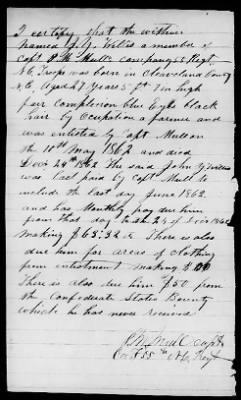 I certify that the within
named J. Y. Wells a member of
Capt P. M. Mull's company 55 Regt
N.C. Troops was born in Cleaveland County
N.C. Aged 27 years 5 ft in high
fair complexion blue Eyes black
hair by Occupation a farmer and
was enlisted by Capt Mull on
the 10th May 1862 and died
Decr 24th 1862 The said John Y Wells
was last paid by Capt Mull to
include the last day June 1862
and has Monthly pay due him
from that day 24 of Decr 1862
making $63:32 There is also
due him for areas of clothing
from enlistment making $
There is also due him $50 from
the Confederate States Bounty
which he has never received
P. M. Mull Capt
Co 55th N.C. Regt